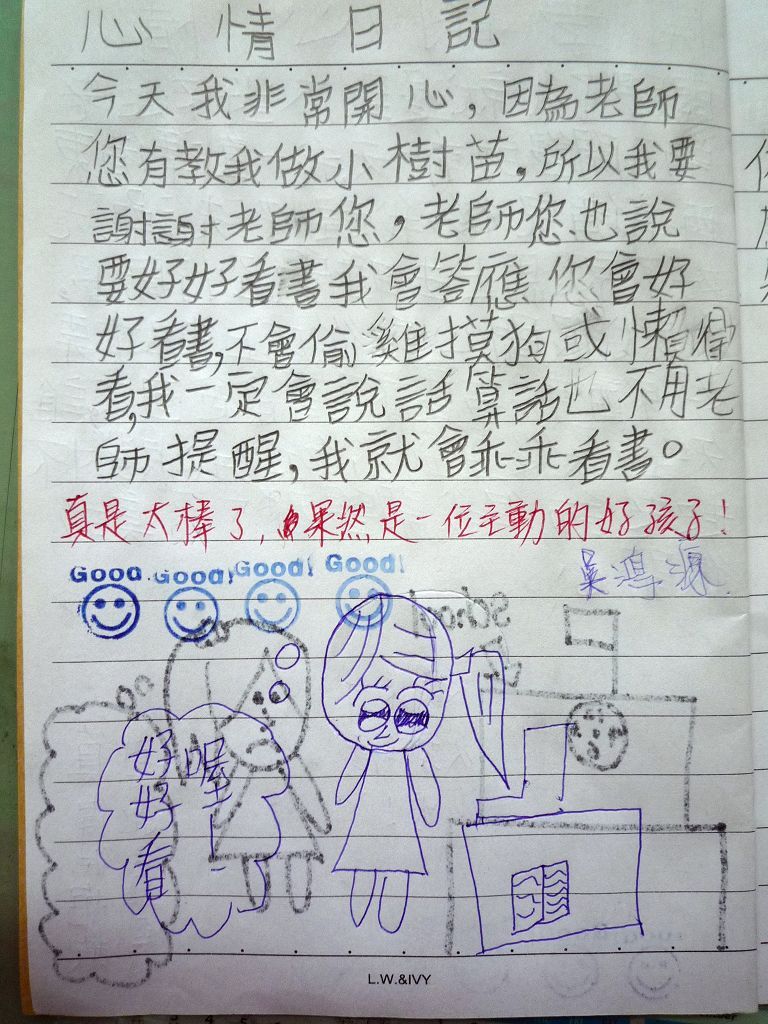 心情日記
今天我非常開心，因為老師
您有教我做小樹苗，所以我要
謝謝老師您，老師您也說
要好好看書我會答應您會好
好看書，不會偷雞摸狗或懶得
看，我一定會說話算話也不用老
師提醒，我就會乖乖看書。
真是太棒了，果然是一位主動的好孩子！
吳鴻源
Good. Good! Good! Good!
school
好好看
喔
L.W.&IVY